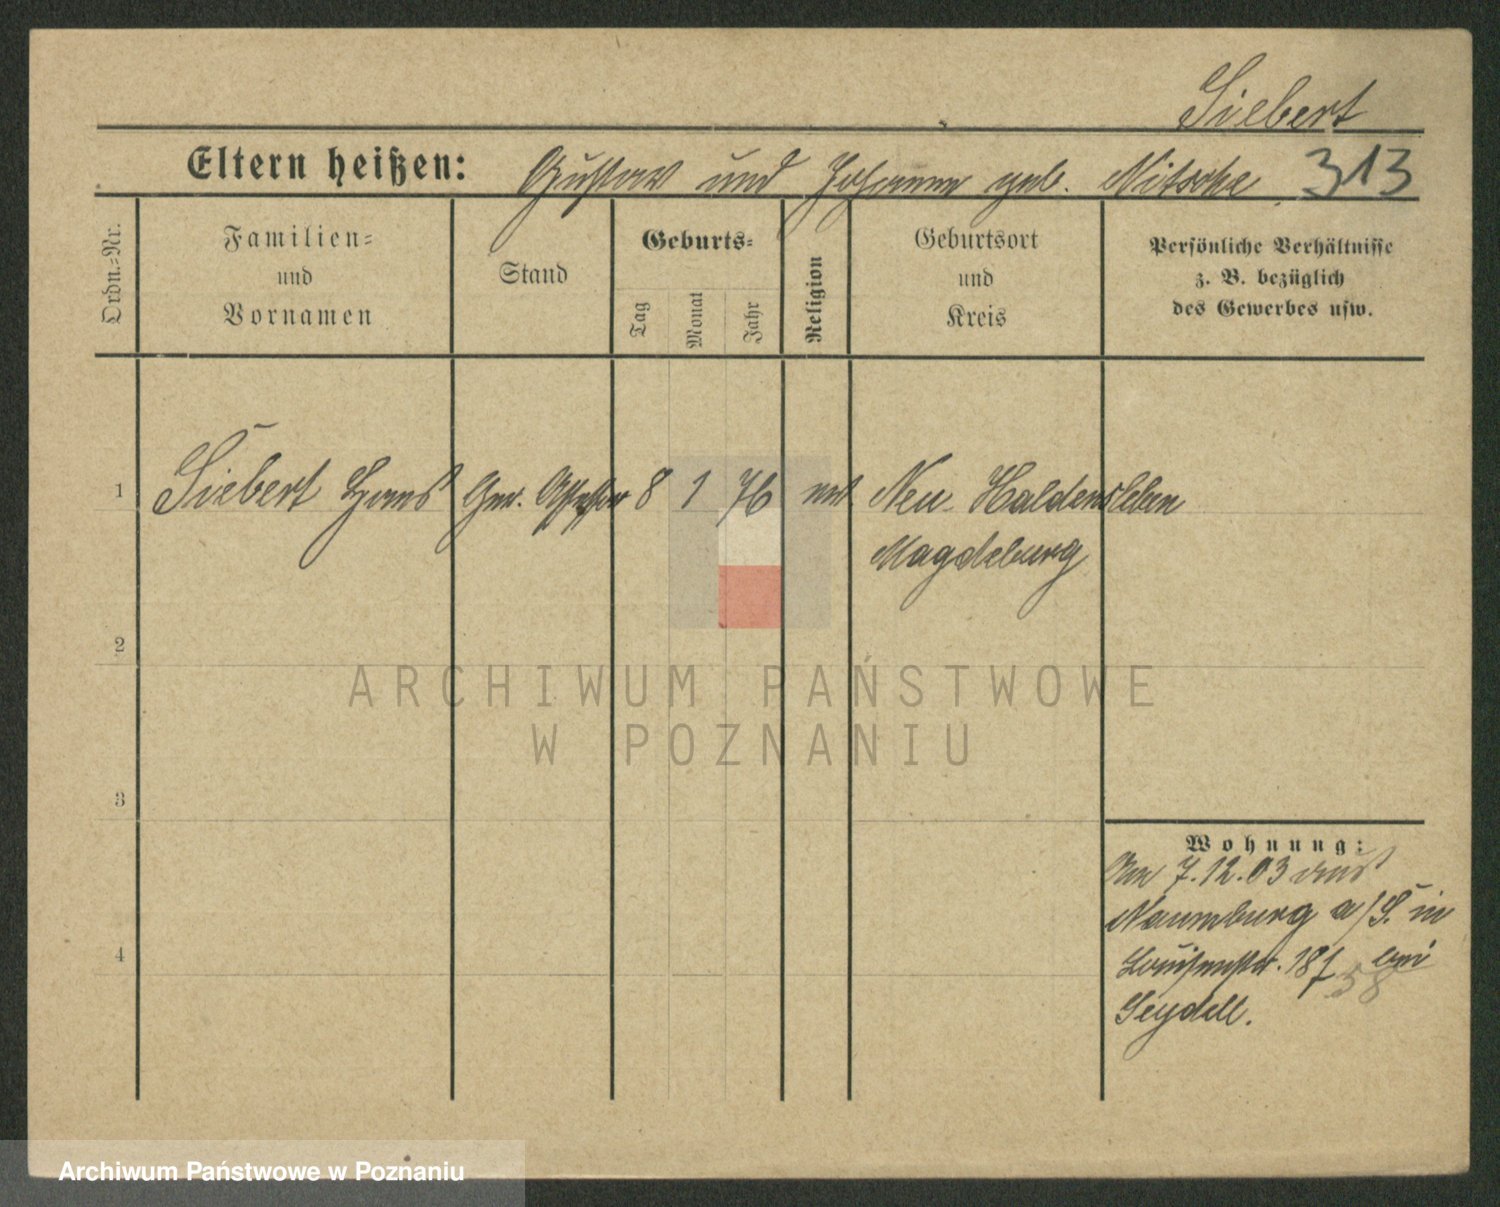 Siebert
Eltern heißen: Gustav und Johanna geb. Nitschke 313
Ordn.-Nr.
Familien-
und
Vornamen
Stand
Geburts-
Tag
Monat
Jahr
Religion
Geburtsort
und
Kreis
Persönliche Verhältnisse
z. B. bezüglich
des Gewerbes usw.
1 Siebert Hans Ger. Assessor 8 1 76 Neu Haldensleben
Magdeburg
2
ARCHIWUM PAŃSTWOWE
W POZNANIU
3
Wohnung:
7.12.03 aus
Naumburg a/S. in
4
Louisenstr. 18 bei
58
Seydell.
Archiwum Państwowe w Poznaniu